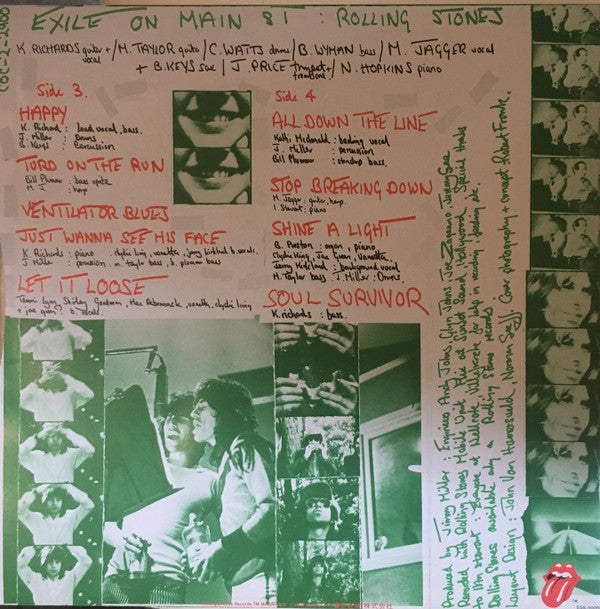 COC-2-2900
EXILE ON MAIN ST : ROLLING STONES
K. RICHARDS guitar + / M. TAYLOR guitar / C. WATTS drums / B. WYMAN bass / M. JAGGER vocal
vocal
+ B. KEYS sax / J. PRICE trumpet + / N. HOPKINS piano
trombone
Side 3.
HAPPY
K. Richard : lead vocal, bass.
J. Miller : Drums
B. Keys : Percussion
TURD ON THE RUN
Bill Plummer : bass
M. J. : harp
VENTILATOR BLUES
JUST WANNA SEE HIS FACE
K. Richards : piano clydie king, vanetta, jerry kirkland b. vocals.
J. Miller : percussion, m. taylor bass, b. plummer bass
LET IT LOOSE
Tammi Lynn, Shirley Goodman, Mac Rebennack, vanetta, clydie king
+ joe green : b. vocals.
Side 4
ALL DOWN THE LINE
Kathi Mcdonald : backing vocal
J. Miller : percussion
Bill Plummer : standup bass.
STOP BREAKING DOWN
M. Jagger : guitar, harp.
I. Stewart : piano
SHINE A LIGHT
B. Preston : organ, piano
Clydie King, Joe Green, Vanetta,
Jerry Kirkland : background vocal
M. Taylor bass. J. Miller : Drums.
SOUL SURVIVOR
K. richards : bass.
Produced by Jimmy Miller Engineers Andy Johns, Glyn Johns, Joe Zagarino, Jeremy Gee
Recorded with Rolling Stones Mobile Unit Mix at Sunset Sound Hollywood Special thanks
to Ian Stewart
Rolling Stones available only on Rolling Stones records
Layout Design : John Van Hamersveld / Norman Seeff Cover photography + concept Robert Frank.